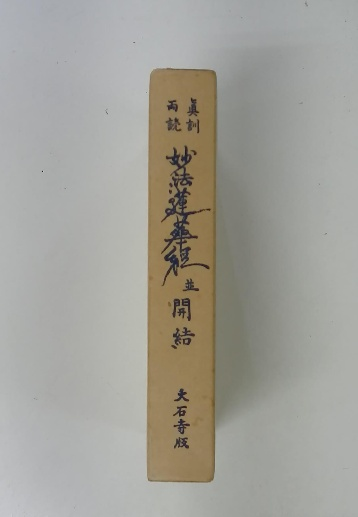 眞訓
両読
妙法蓮華経
並
開結
大石寺版